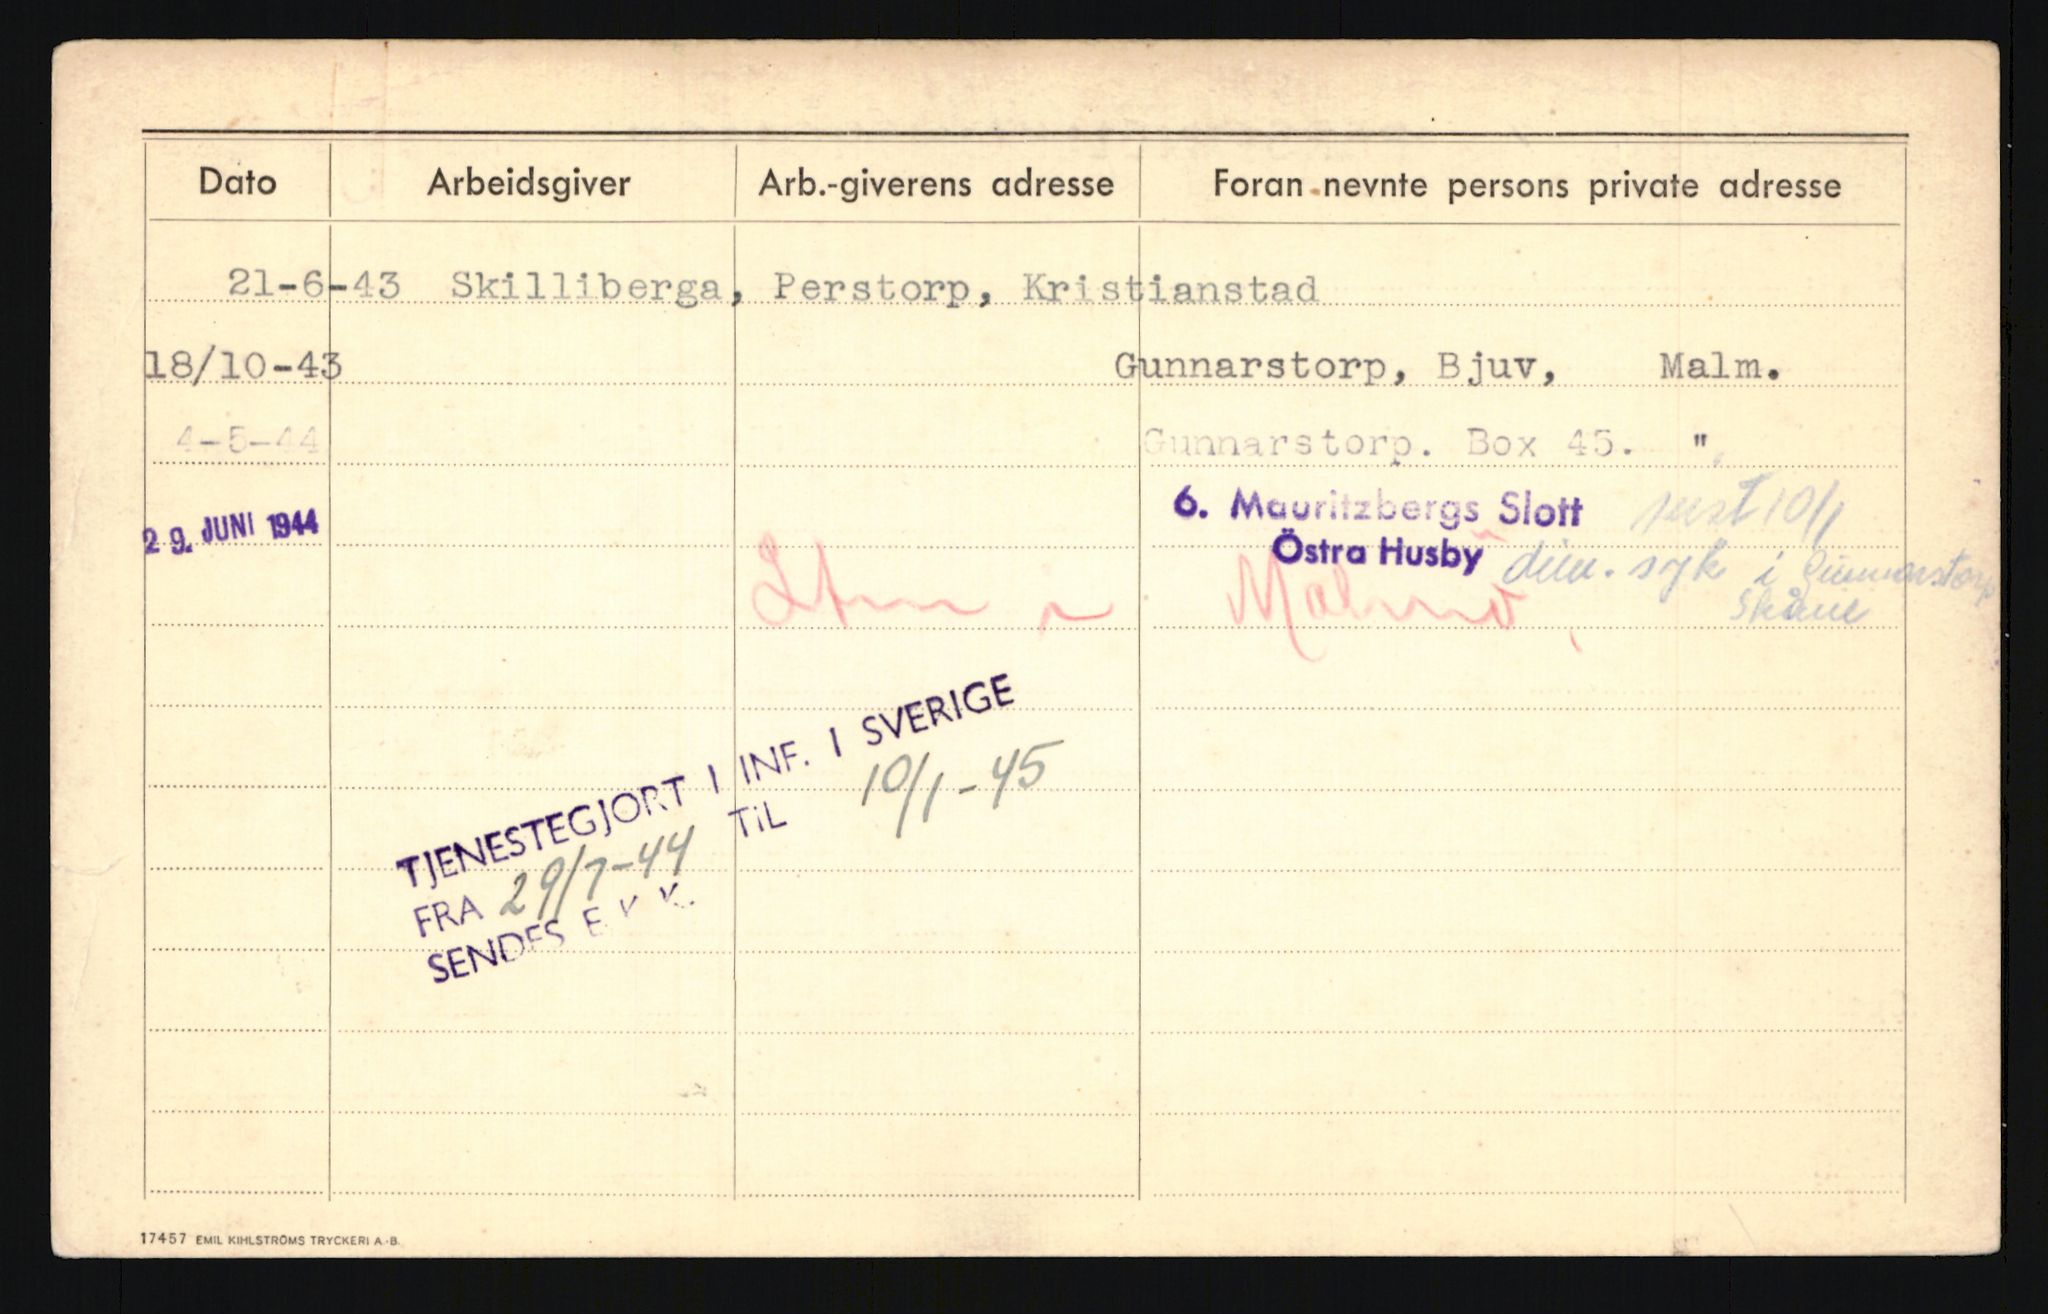 Dato Arbeidsgiver Arb.-giverens adresse Foran nevnte persons private adresse
21-6-43 Skilliberga, Perstorp, Kristianstad
18/10-43 Gunnarstorp, Bjuv, Malm.
4-5-44 Gunnarstorp. Box 45. ",
29. JUNI 1944 6. Mauritzbergs Slott 10/1
Östra Husby dim. syk i Gunnarstorp
Skåne
Malmö
TJENESTEGJORT I INF. I SVERIGE
FRA 29/7-44 TIL 10/1-45
SENDES E. K. K.
17457 EMIL KIHLSTRÖMS TRYCKERI A.-B.